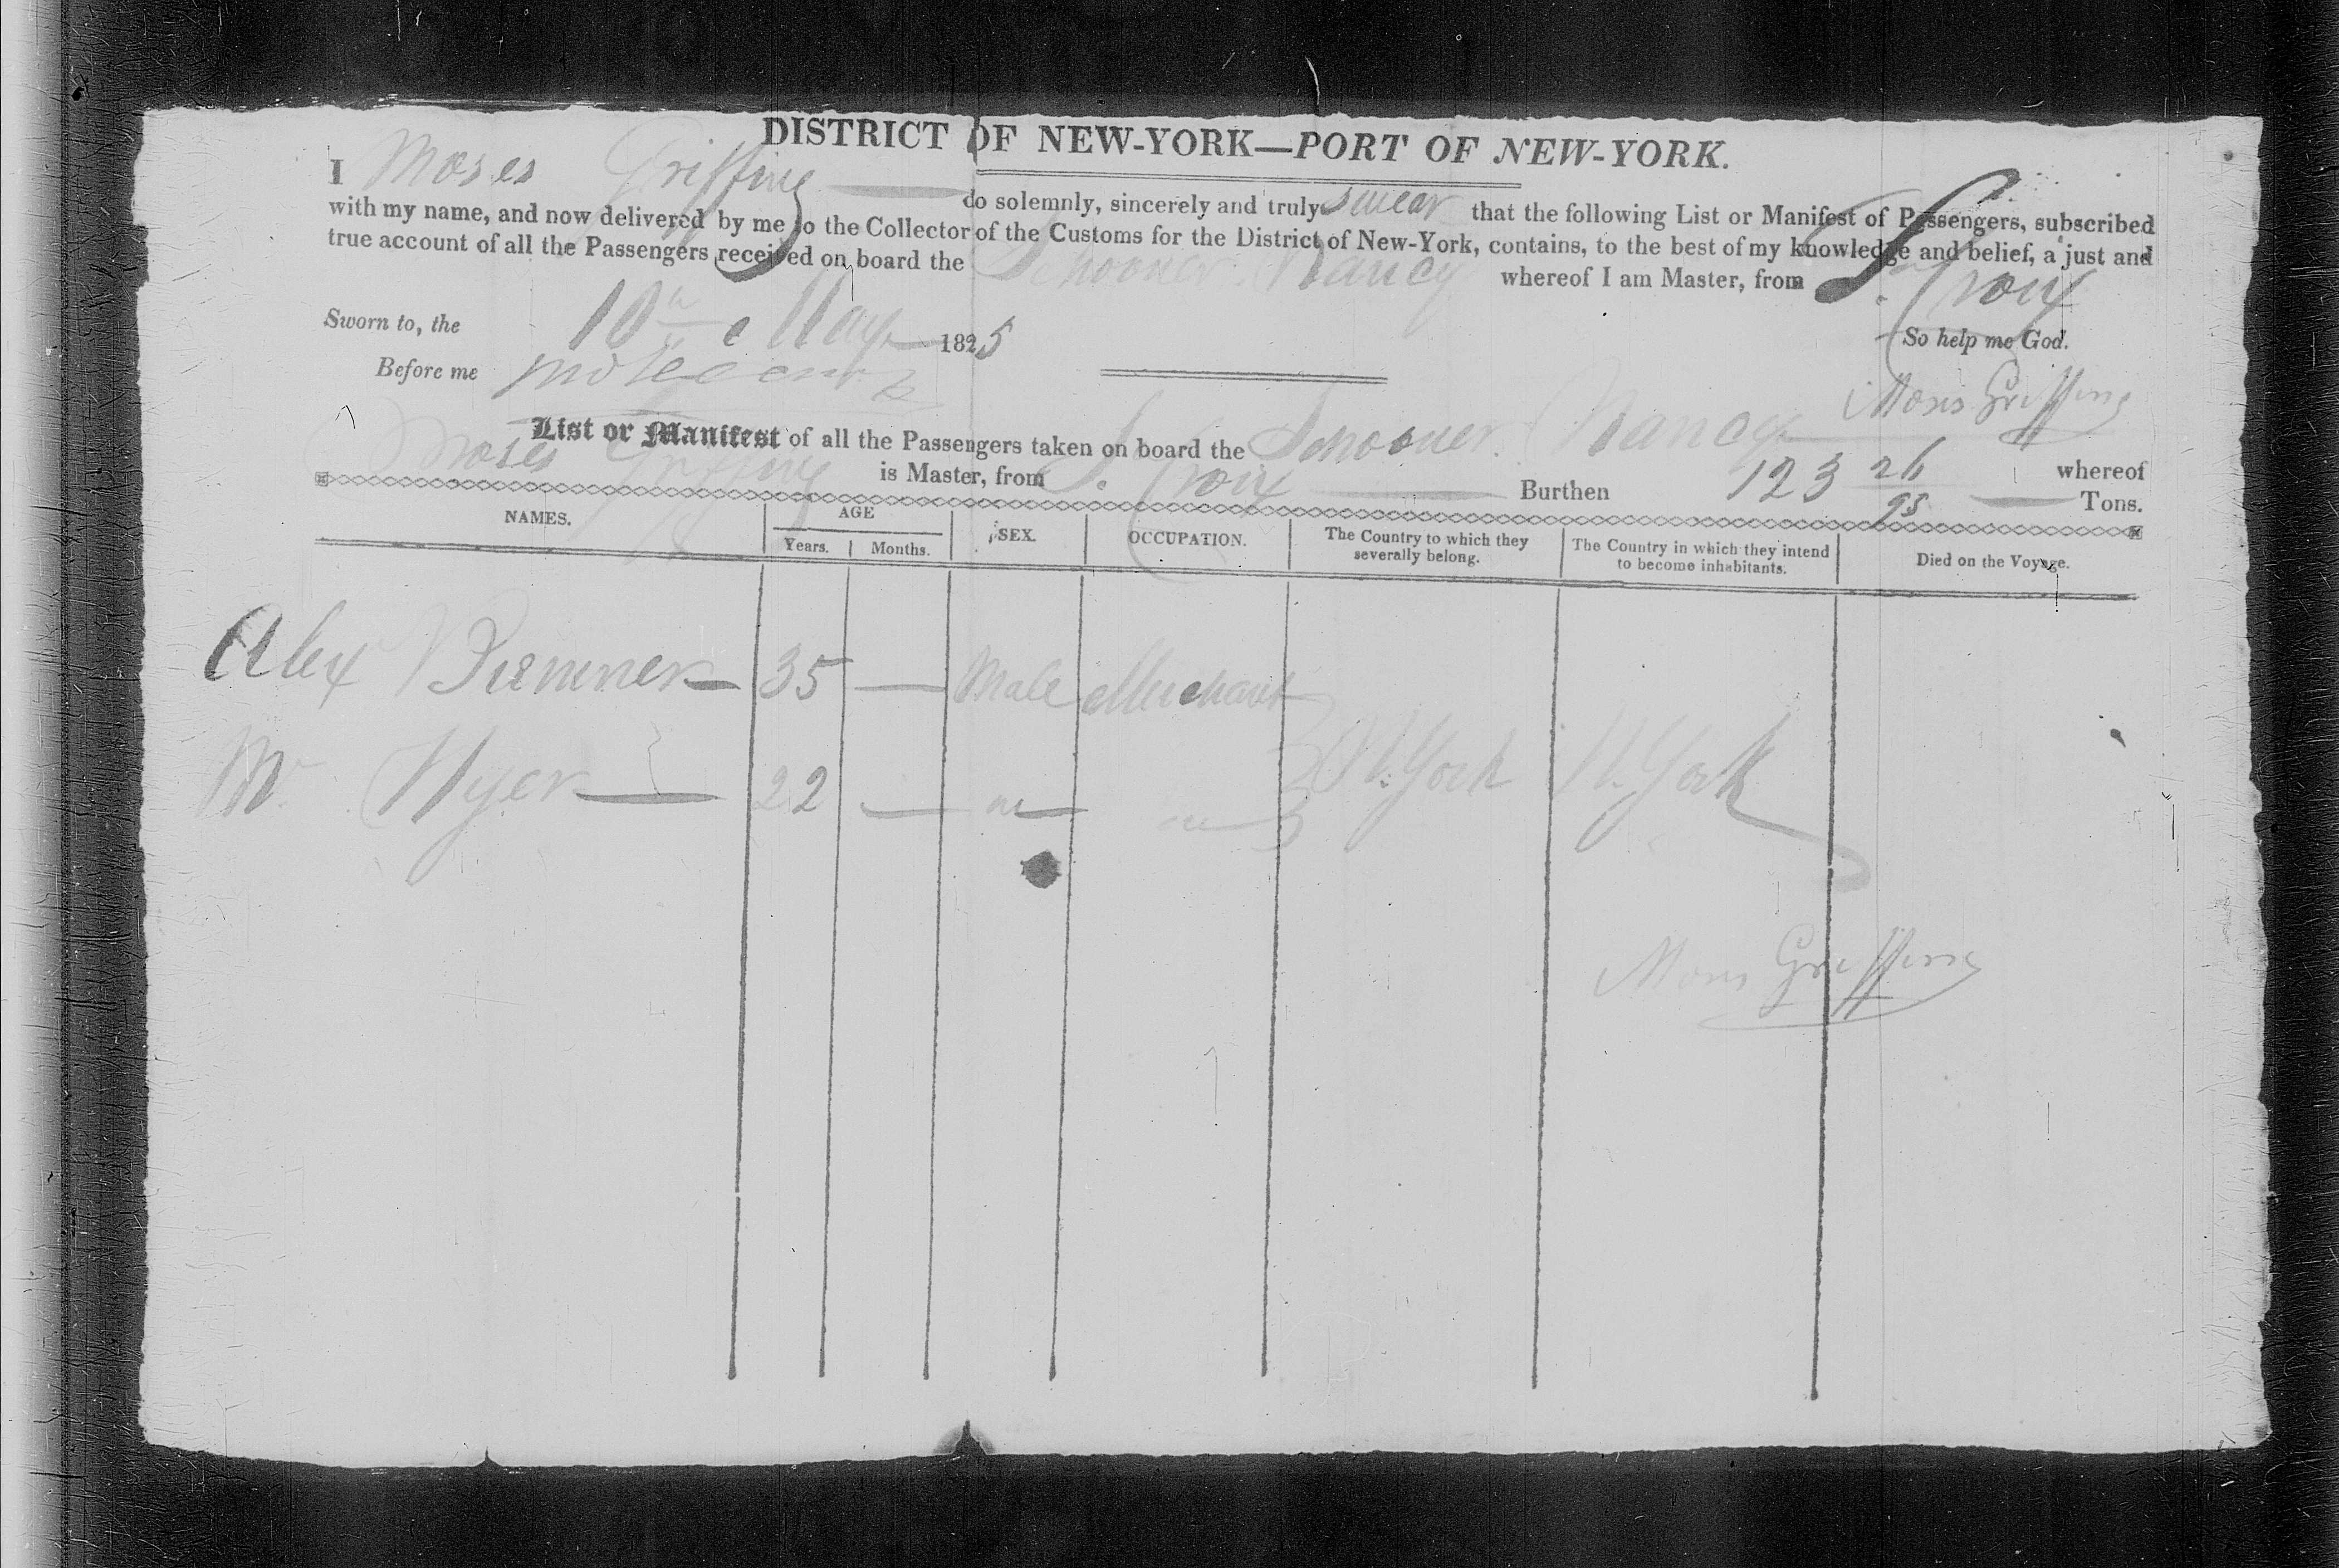 DISTRICT OF NEW-YORK—PORT OF NEW-YORK.
I Moses Griffing do solemnly, sincerely and truly swear that the following List or Manifest of Passengers, subscribed
with my name, and now delivered by me to the Collector of the Customs for the District of New-York, contains, to the best of my knowledge and belief, a just and
true account of all the Passengers received on board the Schooner Nancy whereof I am Master, from St. Croix
Sworn to, the 10th May 1825 So help me God.
Before me Moses Griffing
List or Manifest of all the Passengers taken on board the Schooner Nancy whereof
Moses Griffing is Master, from St. Croix Burthen 123 26/95 Tons.
NAMES. AGE SEX. OCCUPATION. The Country to which they severally belong. The Country in which they intend to become inhabitants. Died on the Voyage.
Years. Months.
Alex 35 — Male Merchant
Mr. Hyer 22 — " " N. York N. York
Moses Griffing